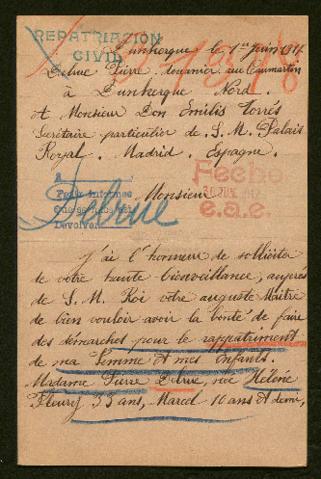 REPATRIACION
CIVIL
Dunkerque le 1er Juin 1917
Delrue Pierre douanier au
à Dunkerque Nord.
et Monsieur Don Emilis Torrés
Secrétaire particulier de S. M. Palais
Royal. Madrid. Espagne.
A
Pide informes
Devolver
Delrue
Fecho
30 JUN. 1917
e.a.e.
Monsieur
J'ai l'honneur de solliciter
de votre haute bienveillance, auprès
de S. M. Roi votre auguste Maître
de bien vouloir avoir la bonté de faire
des démarches pour le rappatriment
de ma Femme et mes enfants.
Madame Pierre Delrue, née Hélène
Fleury 33 ans, Marcel 10 ans et demi,